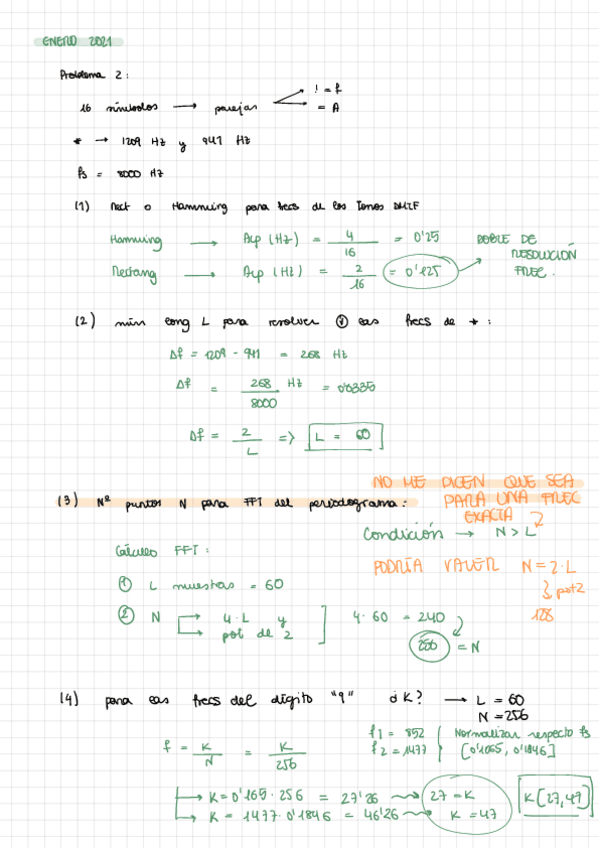 ENERO 2021
Problema 2:
16 símbolos → parejas ! = f
= A
* → 1209 Hz y 941 Hz
fs = 8000 Hz
(1) Rect o Hamming para frecs de los Tonos DMTF
Hamming → Δlp (Hz) = 4/16 = 0'25
Rectang → Δlp (Hz) = 2/16 = 0'125
DOBLE DE RESOLUCIÓN FREC.
(2) min long L para resolver las frecs de * :
Δf = 1209 - 941 = 268 Hz
Δf = 268 Hz / 8000 = 0'0335
Δf = 2/L => L = 60
NO ME DICEN QUE SEA
(3) Nº puntos N para FFT del periodograma: PARA UNA FREC
EXACTA
Condición → N > L
Cálculo FFT:
PODRÍA VALER N = 2·L
① L muestras = 60
pot2
128
② N → 4·L y
→ pot de 2
4·60 = 240
256 = N
(4) para las frecs del dígito "9" ¿K? → L = 60
N = 256
f = K/N = K/256
f1 = 852
f2 = 1477
Normalizar respecto fs
[0'1065, 0'1846]
K = 0'165·256 = 27'26 → 27 = K
K = 1477·0'1846 = 46'26 → K = 47
K[27,47]